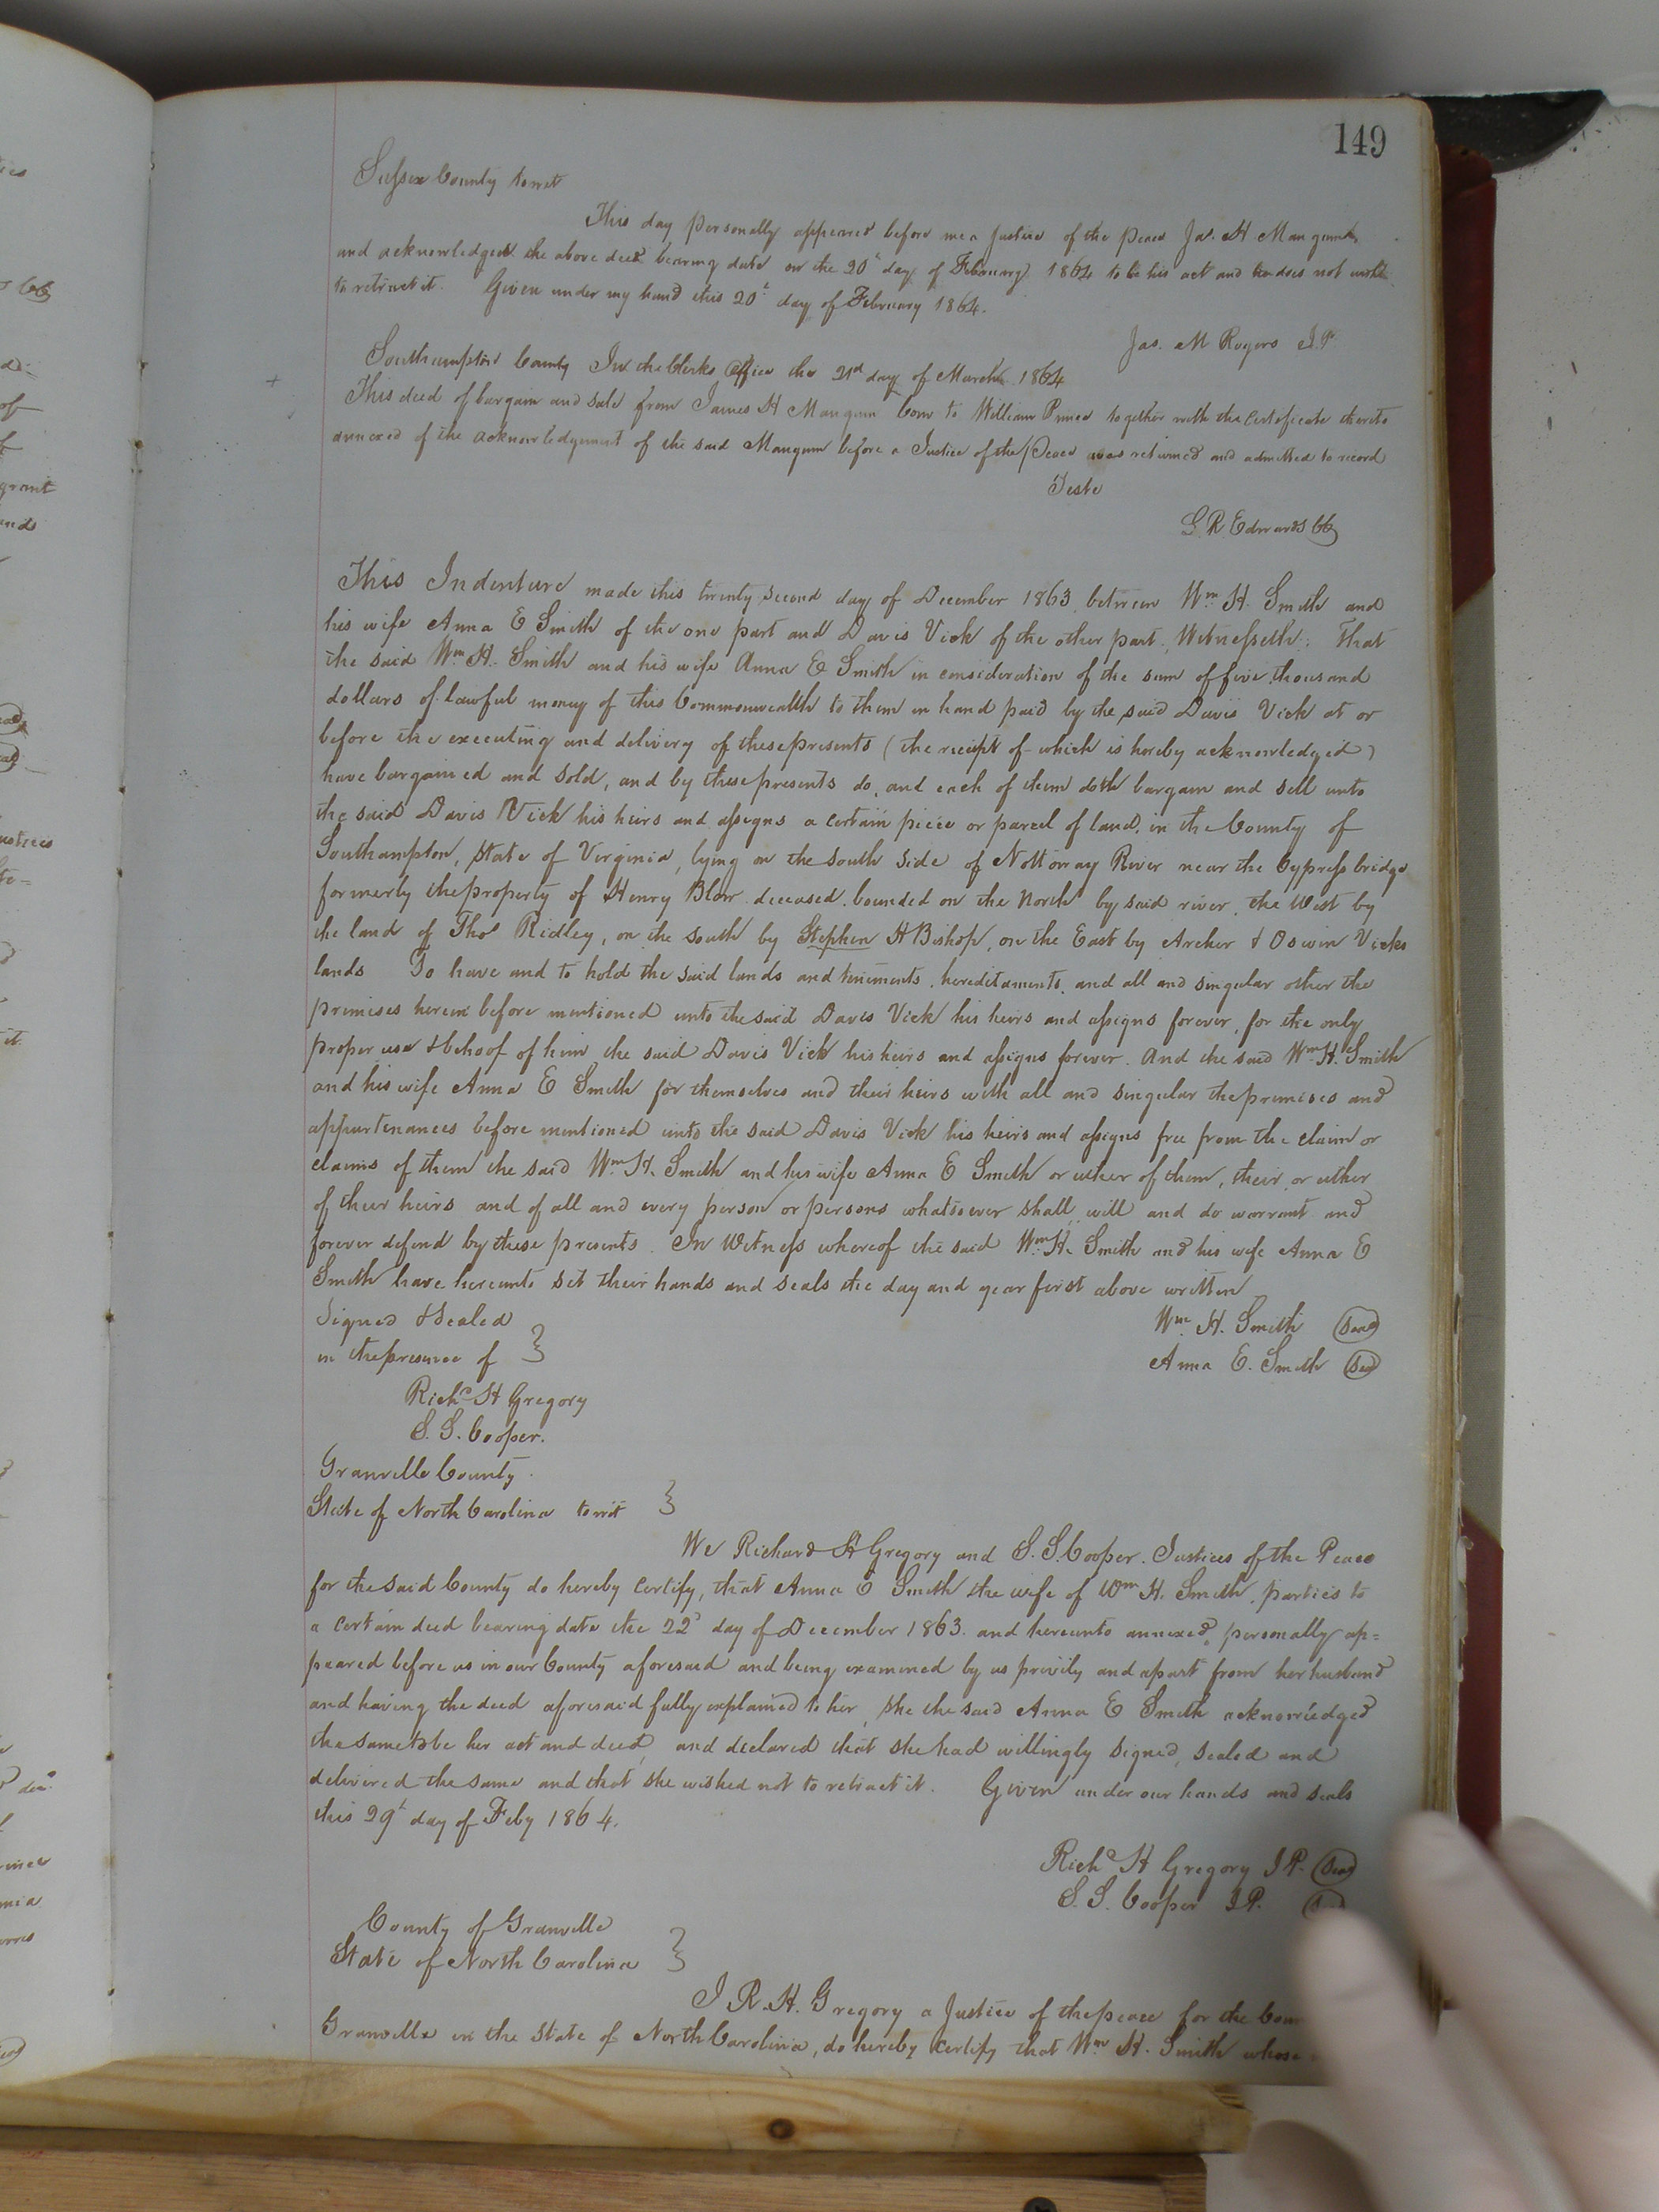 149
Sussex County to wit
This day personally appeared before me a Justice of the peace Jas. H Mangum
and acknowledged the above deed bearing date on the 20th day of February 1864 to be his act and he does not wish
to retract it. Given under my hand this 20th day of February 1864.
Jas. M Rogers J.P.
Southampton County In the Clerks Office the 21st day of March 1864
This deed of bargain and sale from James H Mangum Com to William Prince together with the certificate thereto
annexed of the acknowledgement of the said Mangum before a Justice of the Peace was returned and admitted to record
Teste
L. R. Edwards CC
This Indenture made this twenty second day of December 1863 between Wm H. Smith and
his wife Anna E Smith of the one part and Davis Vick of the other part, Witnesseth: That
the said Wm H. Smith and his wife Anna E Smith in consideration of the sum of five thousand
dollars of lawful money of this Commonwealth to them in hand paid by the said Davis Vick at or
before the executing and delivery of these presents (the receipt of which is hereby acknowledged)
have bargained and sold, and by these presents do, and each of them doth bargain and sell unto
the said Davis Vick his heirs and assigns a certain piece or parcel of land, in the County of
Southampton, State of Virginia, lying on the south side of Nottoway River near the Cypress bridge
formerly the property of Henry Blow deceased. bounded on the North by said river, the West by
the land of Thos Ridley, on the South by Stephen H Bishop, on the East by Archer & Oswin Vicks
lands To have and to hold the said lands and tenements, hereditaments, and all and singular other the
premises herein before mentioned unto the said Davis Vick his heirs and assigns forever, for the only
proper use & behoof of him the said Davis Vick his heirs and assigns forever. And the said Wm H. Smith
and his wife Anna E Smith for themselves and their heirs with all and singular the premises and
appurtenances before mentioned unto the said Davis Vick his heirs and assigns free from the claim or
claims of them the said Wm H. Smith and his wife Anna E Smith or either of them, their or either
of their heirs and of all and every person or persons whatsoever shall, will and do warrant and
forever defend by these presents. In Witness whereof the said Wm H. Smith and his wife Anna E
Smith have hereunto set their hands and seals the day and year first above written
Signed & Sealed
Wm H. Smith Seal
in the presence of
Anna E. Smith Seal
Richd H Gregory
S. S. Cooper.
Granville County
State of North Carolina to wit
We Richard H Gregory and S. S. Cooper. Justices of the Peace
for the said County do hereby certify, that Anna E Smith the wife of Wm H. Smith, parties to
a certain deed bearing date the 22d day of December 1863. and hereunto annexed, personally ap=
peared before us in our County aforesaid and being examined by us privily and apart from her husband
and having the deed aforesaid fully explained to her, she the said Anna E Smith acknowledged
the same to be her act and deed, and declared that she had willingly signed, sealed and
delivered the same and that she wished not to retract it. Given under our hands and seals
this 29th day of Feby 1864.
Richd H Gregory J.P. Seal
S. S. Cooper J.P.
County of Granville
State of North Carolina
I R. H. Gregory a Justice of the peace for the
Granville in the State of North Carolina, do hereby certify that Wm H. Smith whose